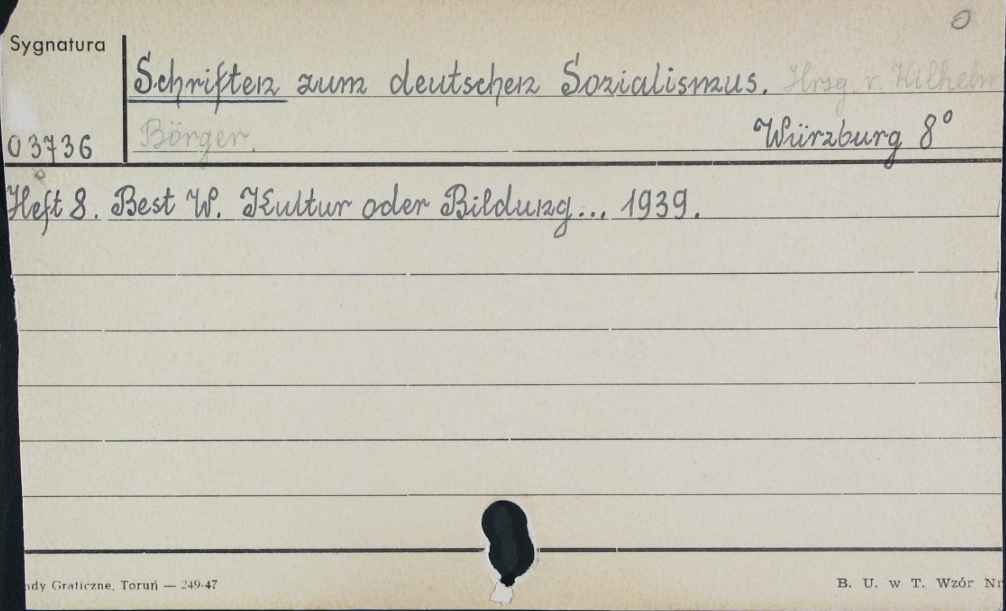 O
Sygnatura
Schriften zum deutschen Sozialismus. Hrsg. v. Wilhelm
03736 Börger. Würzburg 8°
Heft 8. Best W. Kultur oder Bildung... 1939.
ady Graficzne, Toruń — 249-47 B. U. w T. Wzór Nr